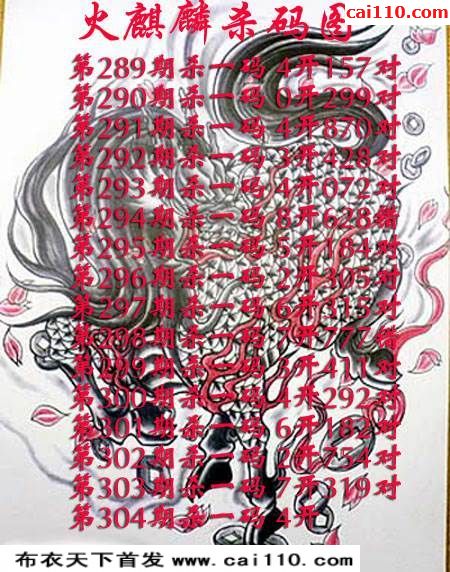 cai110.com
火麒麟杀码图
第289期杀一码 4开157对
第290期杀一码 0开299对
第291期杀一码 4开870对
第292期杀一码 3开428对
第293期杀一码 4开072对
第294期杀一码 8开628错
第295期杀一码 5开184对
第296期杀一码 2开305对
第297期杀一码 6开315对
第298期杀一码 7开777错
第299期杀一码 3开411对
第300期杀一码 4开292对
第301期杀一码 6开182对
第302期杀一码 2开754对
第303期杀一码 7开319对
第304期杀一码 4开
布衣天下首发 www.cai110.com